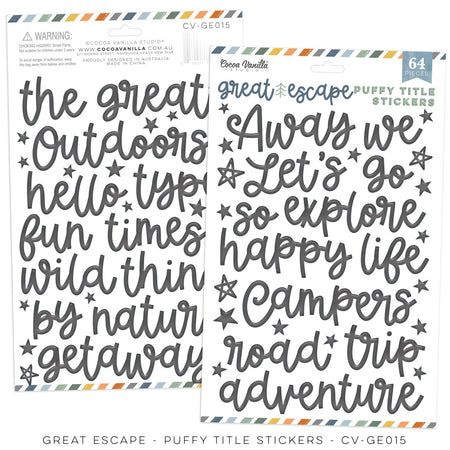 WARNING:
CHOKING HAZARD: Small Parts.
Not suitable for children under 3 years.
To avoid danger of suffocation, keep this
bag away from babies and children.
©COCOA VANILLA STUDIO®
WWW.COCOAVANILLA.COM.AU
PROUDLY DESIGNED IN AUSTRALIA
MADE IN CHINA
CV-GE015
the great
Outdoors
hello type
fun times
wild thin
by natur
getaway
Cocoa Vanilla
STUDIO
64
PIECES
great escape
PUFFY TITLE
STICKERS
Away we
Let's go
so explore
happy life
Campers
road trip
adventure
GREAT ESCAPE - PUFFY TITLE STICKERS - CV-GE015